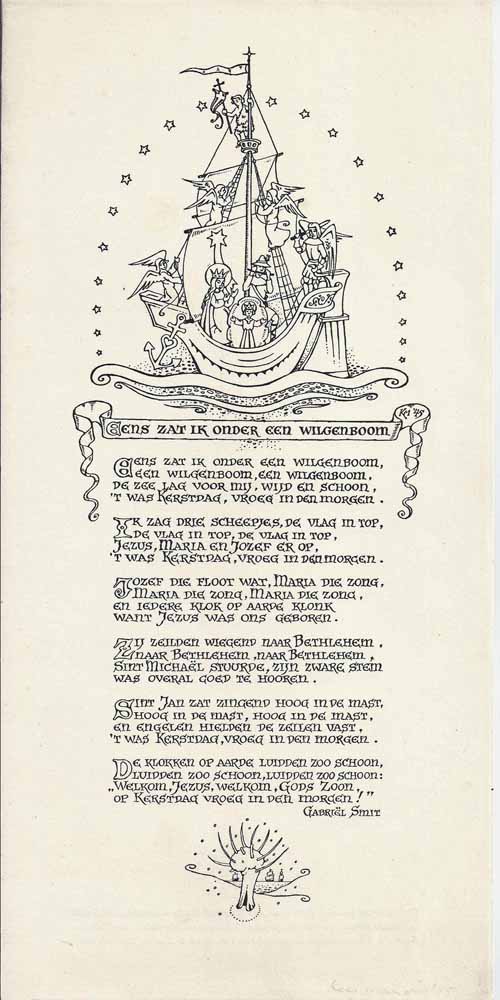 EENS ZAT IK ONDER EEN WILGENBOOM
EENS ZAT IK ONDER EEN WILGENBOOM,
EEN WILGENBOOM, EEN WILGENBOOM,
DE ZEE LAG VOOR MIJ, WIJD EN SCHOON,
'T WAS KERSTDAG, VROEG IN DEN MORGEN.
IK ZAG DRIE SCHEEPJES, DE VLAG IN TOP,
DE VLAG IN TOP, DE VLAG IN TOP,
JEZUS, MARIA EN JOZEF ER OP,
'T WAS KERSTDAG, VROEG IN DEN MORGEN.
JOZEF DIE FLOOT WAT, MARIA DIE ZONG,
MARIA DIE ZONG, MARIA DIE ZONG,
EN IEDERE KLOK OP AARDE KLONK
WANT JEZUS WAS ONS GEBOREN.
ZIJ ZEILDEN WIEGEND NAAR BETHLEHEM,
NAAR BETHLEHEM, NAAR BETHLEHEM,
SINT MICHAËL STUURDE, ZIJN ZWARE STEM
WAS OVERAL GOED TE HOOREN.
SINT JAN ZAT ZINGEND HOOG IN DE MAST,
HOOG IN DE MAST, HOOG IN DE MAST,
EN ENGELEN HIELDEN DE ZEILEN VAST,
'T WAS KERSTDAG, VROEG IN DEN MORGEN.
DE KLOKKEN OP AARDE LUIDDEN ZOO SCHOON,
LUIDDEN ZOO SCHOON, LUIDDEN ZOO SCHOON:
„WELKOM, JEZUS, WELKOM, GODS ZOON,
OP KERSTDAG VROEG IN DEN MORGEN!"
GABRIËL SMIT